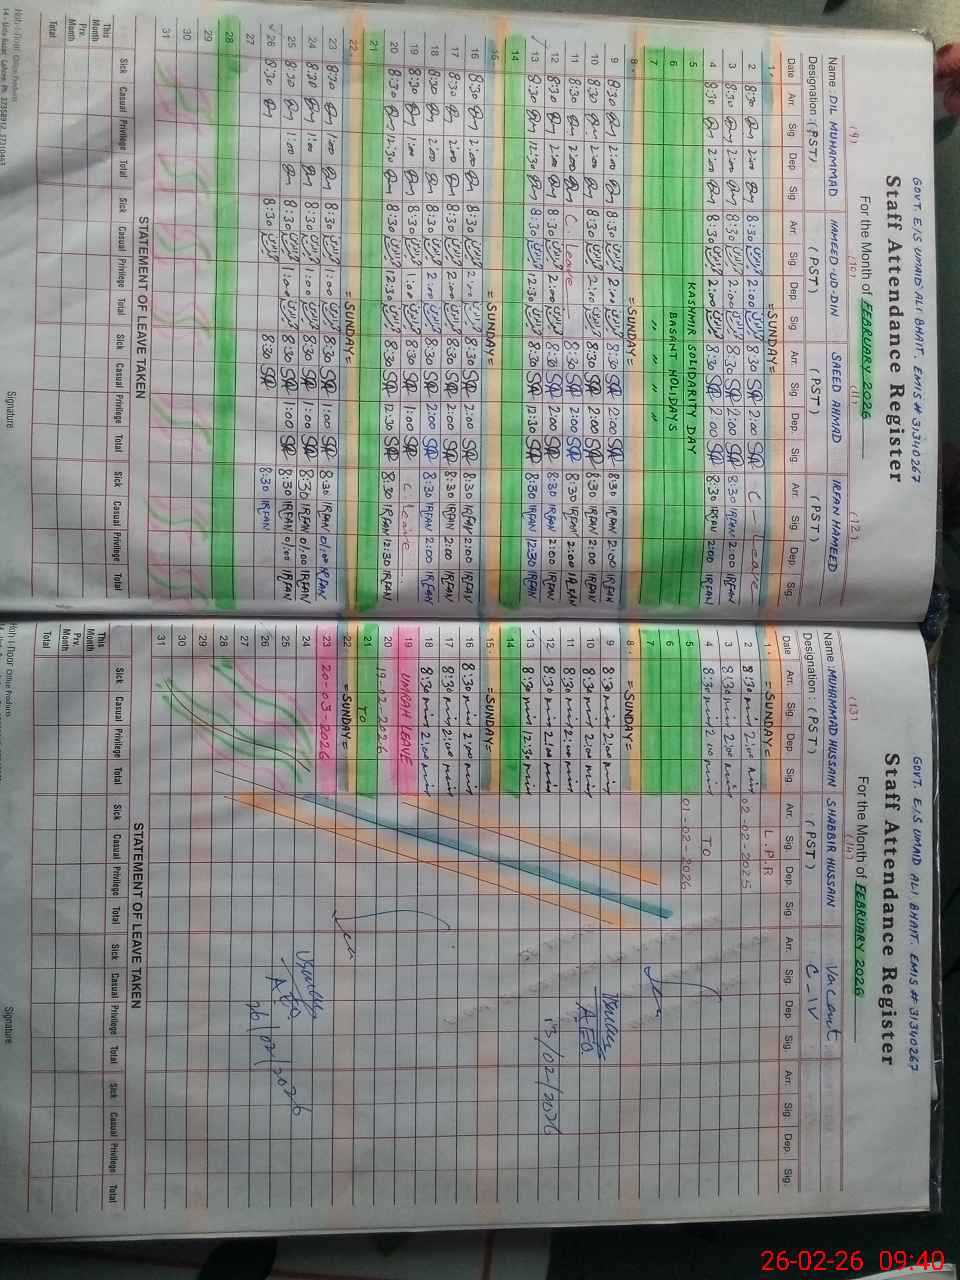 GOVT. E/S UMAID ALI BHAIT. EMIS # 31340267
Staff Attendance Register
For the Month of FEBRUARY 2026
(9) (10) (11) (12)
Name: DIL MUHAMMAD HAMEED-UD-DIN SAEED AHMAD IRFAN HAMEED
Designation: (PST) (PST) (PST) (PST)
Date Arr. Sig. Dep. Sig. Arr. Sig. Dep. Sig. Arr. Sig. Dep. Sig. Arr. Sig. Dep. Sig.
1. =SUNDAY=
2 8:30 2:00 8:30 2:00 8:30 SA 2:00 SA C - Leave
3 8:30 2:00 8:30 2:00 8:30 SA 2:00 SA 8:30 IRFAN 2:00 IRFAN
4 8:30 2:00 8:30 2:00 8:30 SA 2:00 SA 8:30 IRFAN 2:00 IRFAN
5 KASHMIR SOLIDARITY DAY
6 BASANT HOLIDAYS
7 " " " "
8. =SUNDAY=
9 8:30 2:00 8:30 2:00 8:30 SA 2:00 SA 8:30 IRFAN 2:00 IRFAN
10 8:30 2:00 8:30 2:00 8:30 SA 2:00 SA 8:30 IRFAN 2:00 IRFAN
11 8:30 2:00 C. Leave 8:30 SA 2:00 SA 8:30 IRFAN 2:00 IRFAN
12 8:30 2:00 8:30 2:00 8:30 SA 2:00 SA 8:30 IRFAN 2:00 IRFAN
13 8:30 12:30 8:30 12:30 8:30 SA 12:30 SA 8:30 IRFAN 12:30 IRFAN
14
15 =SUNDAY=
16 8:30 2:00 8:30 2:00 8:30 SA 2:00 SA 8:30 IRFAN 2:00 IRFAN
17 8:30 2:00 8:30 2:00 8:30 SA 2:00 SA 8:30 IRFAN 2:00 IRFAN
18 8:30 2:00 8:30 2:00 8:30 SA 2:00 SA 8:30 IRFAN 2:00 IRFAN
19 8:30 1:00 8:30 1:00 8:30 SA 1:00 SA C. Leave
20 8:30 12:30 8:30 12:30 8:30 SA 12:30 SA 8:30 IRFAN 12:30 IRFAN
21
22. =SUNDAY=
23 8:30 1:00 8:30 1:00 8:30 SA 1:00 SA 8:30 IRFAN 01:00 IRFAN
24 8:30 1:00 8:30 1:00 8:30 SA 1:00 SA 8:30 IRFAN 01:00 IRFAN
25 8:30 1:00 8:30 1:00 8:30 SA 1:00 SA 8:30 IRFAN 01:00 IRFAN
26 8:30 8:30 8:30 SA 8:30 IRFAN
27
28
29
30
31
STATEMENT OF LEAVE TAKEN
Sick Casual Privilege Total Sick Casual Privilege Total Sick Casual Privilege Total Sick Casual Privilege Total
This Month
Prv. Month
Total
Signature
GOVT. E/S UMAID ALI BHAIT. EMIS # 31340267
Staff Attendance Register
For the Month of FEBRUARY 2026
(13) (14)
Name: MUHAMMAD HUSSAIN SHABBIR HUSSAIN Vacant
Designation: (PST) (PST) C-IV
Date Arr. Sig. Dep. Sig. Arr. Sig. Dep. Sig. Arr. Sig. Dep. Sig. Arr. Sig. Dep. Sig.
1. =SUNDAY= L.P.R
2 8:30 2:00 02-02-2025
3 8:30 2:00
4 8:30 2:00 TO
5 01-02-2026
6
7
8. =SUNDAY=
9 8:30 2:00
10 8:30 2:00
11 8:30 2:00
12 8:30 2:00
13 8:30 12:30
14
15. =SUNDAY=
16 8:30 2:00
17 8:30 2:00
18 8:30 2:00
19 UMRAH LEAVE
20 19-02-2026
21 TO
22 =SUNDAY=
23 20-03-2026
24
25
26
27
28
29
30
31
A.E.O.
13/02/2026
A.E.O.
26/02/2026
STATEMENT OF LEAVE TAKEN
Sick Casual Privilege Total Sick Casual Privilege Total Sick Casual Privilege Total Sick Casual Privilege Total
This Month
Prv. Month
Total
Signature
26-02-26 09:40